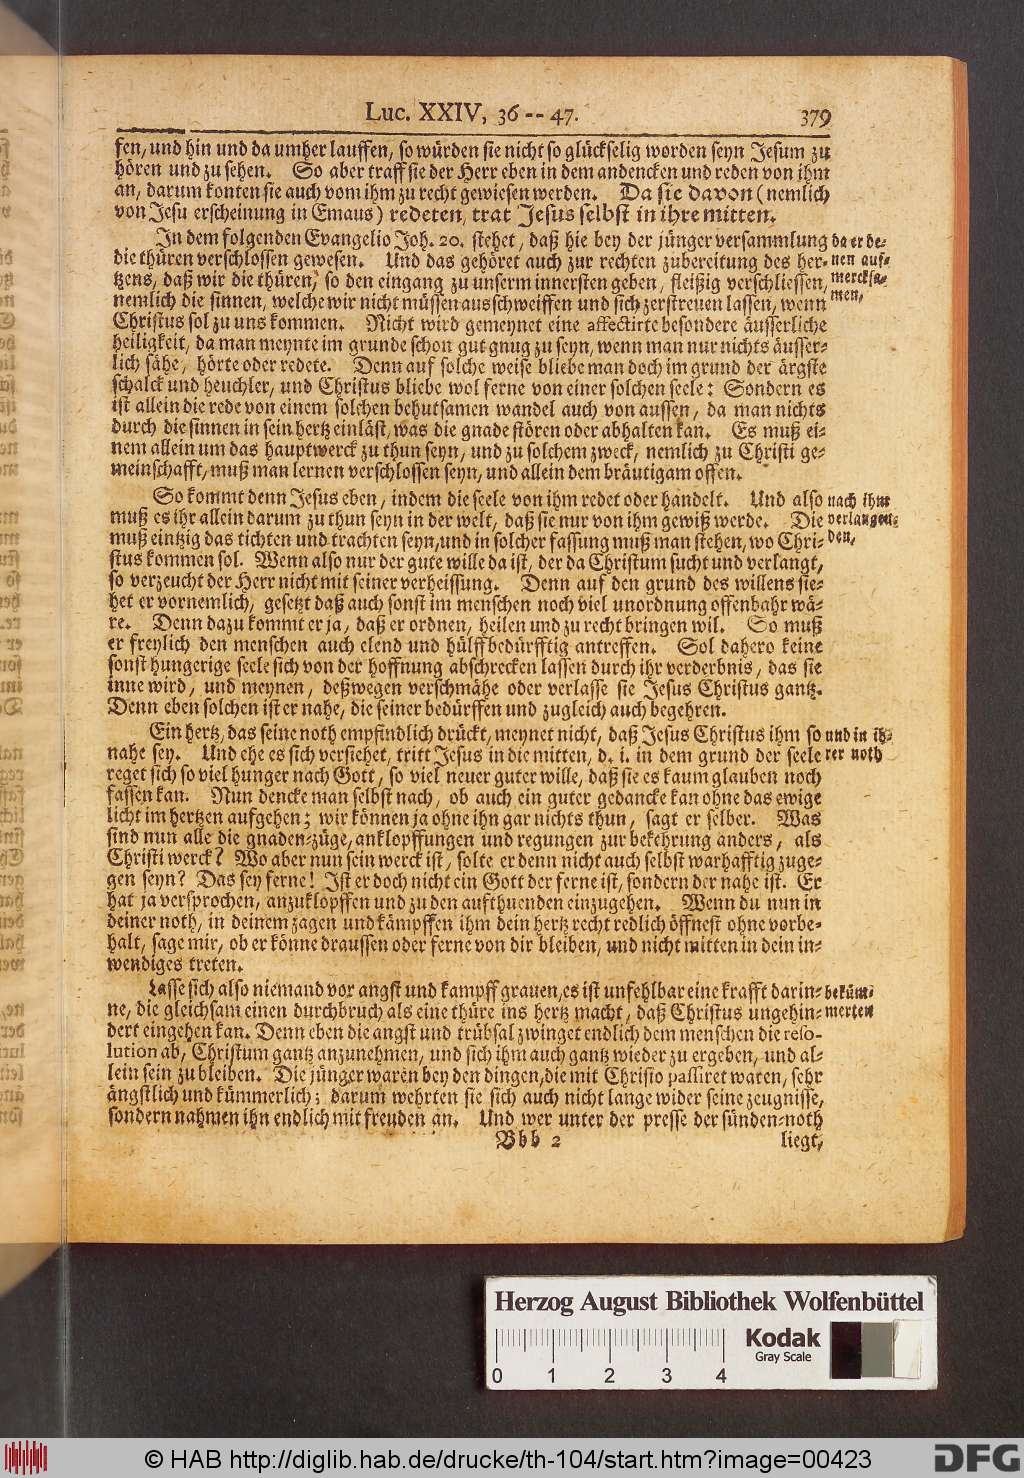 Luc. XXIV, 36 -- 47. 379
sen, und hin und da umher lauffen, so würden sie nicht so glückselig worden seyn Jesum zu
hören und zu sehen. So aber traff sie der Herr eben in dem andencken und reden von ihm
an, darum konten sie auch vom ihm zu recht gewiesen werden. Da sie davon (nemlich
von Jesu erscheinung in Emaus) redeten, trat Jesus selbst in ihre mitten.
In dem folgenden Evangelio Joh. 20. stehet, daß hie bey der jünger versammlung da er de-
die thüren verschlossen gewesen. Und das gehöret auch zur rechten zubereitung des her- nen auf-
tzens, daß wir die thüren, so den eingang zu unserm innersten geben, fleißig verschliessen, mercksa-
nemlich die sinnen, welche wir nicht müssen ausschweiffen und sich zerstreuen lassen, wenn men,
Christus sol zu uns kommen. Nicht wird gemeynet eine affectirte besondere äusserliche
heiligkeit, da man meynte im grunde schon gut gnug zu seyn, wenn man nur nichts äusser-
lich sähe, hörte oder redete. Denn auf solche weise bliebe man doch im grund der ärgste
schalck und heuchler, und Christus bliebe wol ferne von einer solchen seele: Sondern es
ist allein die rede von einem solchen behutsamen wandel auch von aussen, da man nichts
durch die sinnen in sein hertz einläst, was die gnade stören oder abhalten kan. Es muß ei-
nem allein um das hauptwerck zu thun seyn, und zu solchem zweck, nemlich zu Christi ge-
meinschafft, muß man lernen verschlossen seyn, und allein dem bräutigam offen.
So kommt denn Jesus eben, indem die seele von ihm redet oder handelt. Und also nach ihm
muß es ihr allein darum zu thun seyn in der welt, daß sie nur von ihm gewiß werde. Die verlangen-
muß eintzig das tichten und trachten seyn, und in solcher fassung muß man stehen, wo Chri- den,
stus kommen sol. Wenn also nur der gute wille da ist, der da Christum sucht und verlangt,
so verzeucht der Herr nicht mit seiner verheissung. Denn auf den grund des willens sie-
het er vornemlich, gesetzt daß auch sonst im menschen noch viel unordnung offenbahr wä-
re. Denn dazu kommt er ja, daß er ordnen, heilen und zu recht bringen wil. So muß
er freylich den menschen auch elend und hülffbedürfftig antreffen. Sol dahero keine
sonst hungerige seele sich von der hoffnung abschrecken lassen durch ihr verderbnis, das sie
inne wird, und meynen, deßwegen verschmähe oder verlasse sie Jesus Christus gantz.
Denn eben solchen ist er nahe, die seiner bedürffen und zugleich auch begehren.
Ein hertz, das seine noth empfindlich drückt, meynet nicht, daß Jesus Christus ihm so und in ih-
nahe sey. Und ehe es sich versiehet, tritt Jesus in die mitten, d. i. in dem grund der seele rer noth
reget sich so viel hunger nach Gott, so viel neuer guter wille, daß sie es kaum glauben noch
fassen kan. Nun dencke man selbst nach, ob auch ein guter gedancke kan ohne das ewige
licht im hertzen aufgehen; wir können ja ohne ihn gar nichts thun, sagt er selber. Was
sind nun alle die gnaden-züge, anklopffungen und regungen zur bekehrung anders, als
Christi werck? Wo aber nun sein werck ist, solte er denn nicht auch selbst warhafftig zuge-
gen seyn? Das sey ferne! Ist er doch nicht ein Gott der ferne ist, sondern der nahe ist. Er
hat ja versprochen, anzuklopffen und zu den aufthuenden einzugehen. Wenn du nun in
deiner noth, in deinem zagen und kämpffen ihm dein hertz recht redlich öffnest ohne vorbe-
halt, sage mir, ob er könne draussen oder ferne von dir bleiben, und nicht mitten in dein in-
wendiges treten.
Lasse sich also niemand vor angst und kampff grauen, es ist unfehlbar eine krafft darin- beküm-
ne, die gleichsam einen durchbruch als eine thüre ins hertz macht, daß Christus ungehin- merten
dert eingehen kan. Denn eben die angst und trübsal zwinget endlich dem menschen die reso-
lution ab, Christum gantz anzunehmen, und sich ihm auch gantz wieder zu ergeben, und al-
lein sein zu bleiben. Die jünger waren bey den dingen, die mit Christo passiret waren, sehr
ängstlich und kümmerlich; darum wehrten sie sich auch nicht lange wider seine zeugnisse,
sondern nahmen ihn endlich mit freuden an. Und wer unter der presse der sünden-noth
Bbb 2 liegt,
Herzog August Bibliothek Wolfenbüttel
0 1 2 3 4
Kodak
Gray Scale
© HAB http://diglib.hab.de/drucke/th-104/start.htm?image=00423
DFG